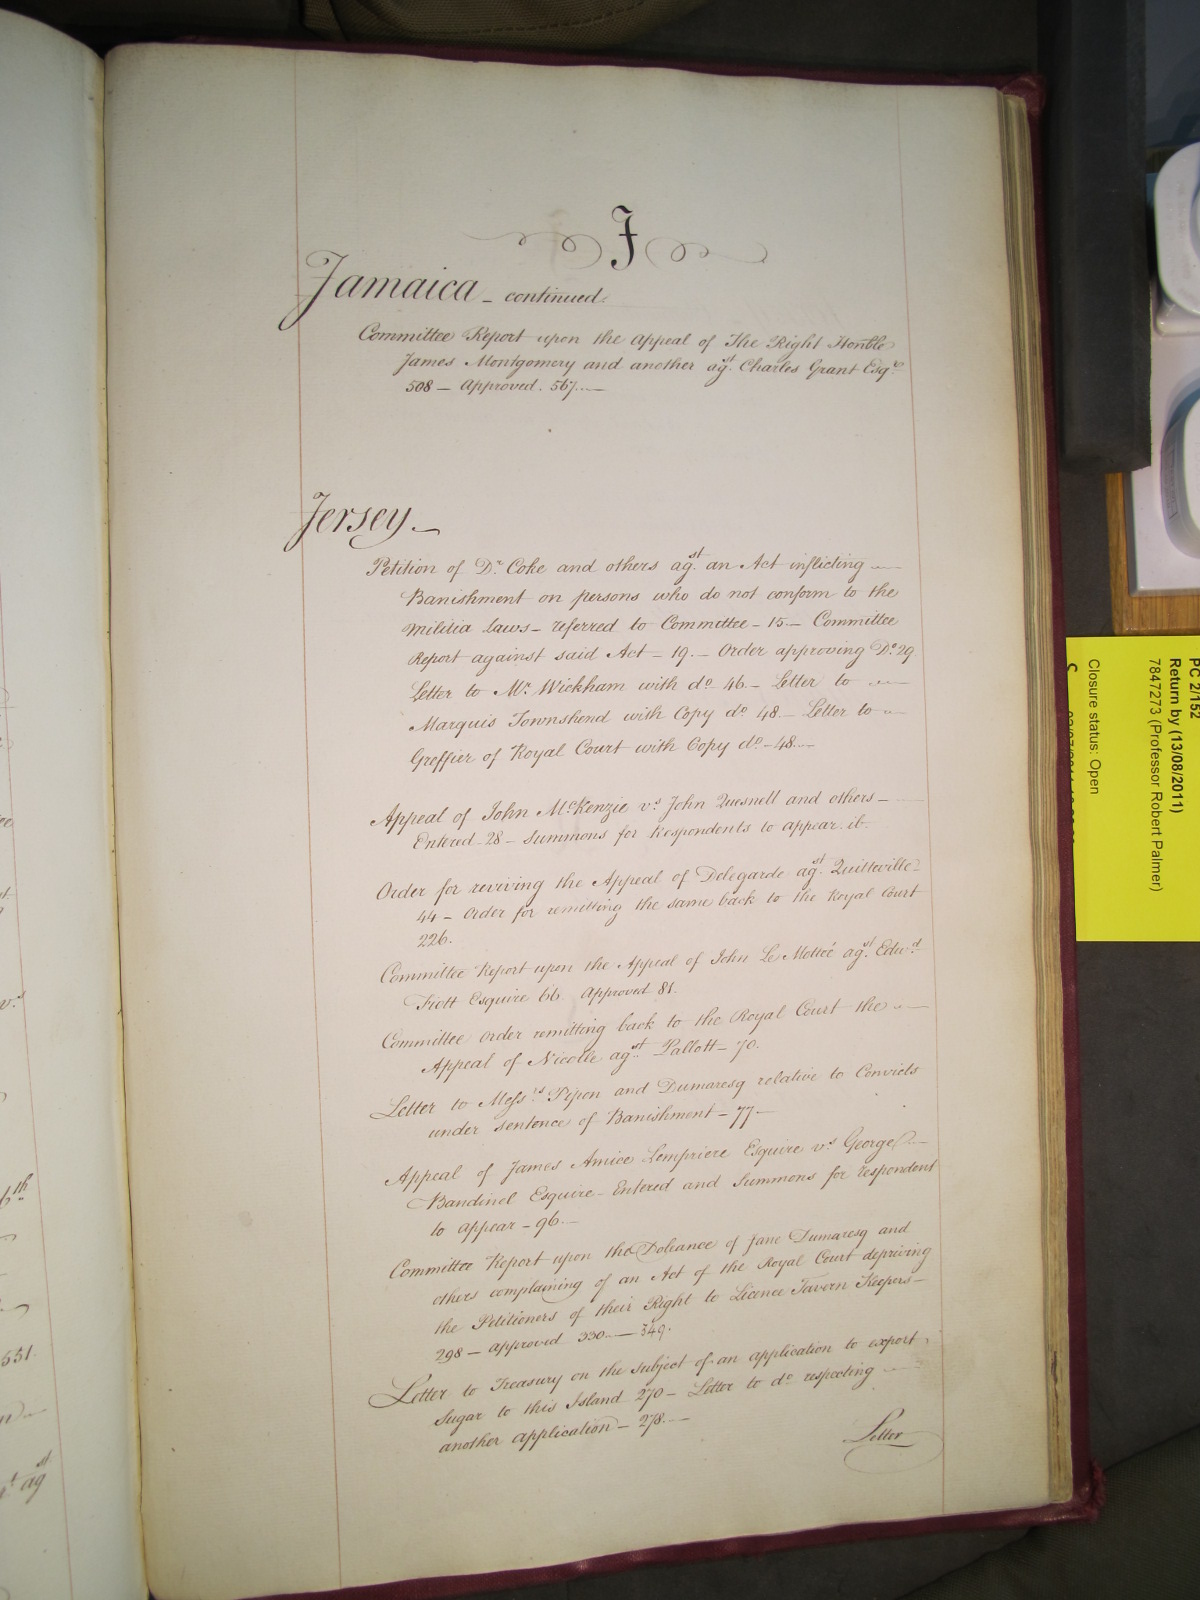 J
Jamaica – continued.
Committee Report upon the Appeal of The Right Honble
James Montgomery and another agst. Charles Grant Esqre
508 – Approved. 567.—
Jersey –
Petition of Dr. Coke and others agst. an Act inflicting —
Banishment on persons who do not conform to the
Militia Laws – referred to Committee – 15. – Committee
Report against said Act – 19. – Order approving Do. 29.
Letter to Mr. Wickham with do. 46. – Letter to —
Marquis Townshend with Copy do. 48. – Letter to —
Greffier of Royal Court with Copy do. – 48. –
Appeal of John McKenzie vs. John Quesnell and others –
Entered – 28 – Summons for Respondents to appear. ib.
Order for reviving the Appeal of Delegarde agst. Quitteville –
44 – Order for remitting the same back to the Royal Court
226.
Committee Report upon the Appeal of John Le Motteé agst. Edwd.
Trott Esquire 66. Approved 81.
Committee Order remitting back to the Royal Court the —
Appeal of Nicolle agst. Pallott – 70.
Letter to Messrs. Pipon and Dumaresq relative to Convicts
under sentence of Banishment – 77 –
Appeal of James Amice Lempriere Esquire vs. George —
Bandinel Esquire – Entered and Summons for respondent
to appear – 96. –
Committee Report upon the Doleance of Jane Dumaresq and
others complaining of an Act of the Royal Court depriving
the Petitioners of their Right to Licence Tavern Keepers –
298 – Approved 330. — 349.
Letter to Treasury on the subject of an application to export
Sugar to this Island 270 – Letter to do. respecting —
another application – 278. –
Letter
6th
551.
agst
Closure status: Open
7847273 (Professor Robert Palmer)
Return by (13/08/2011)
PC 2/152